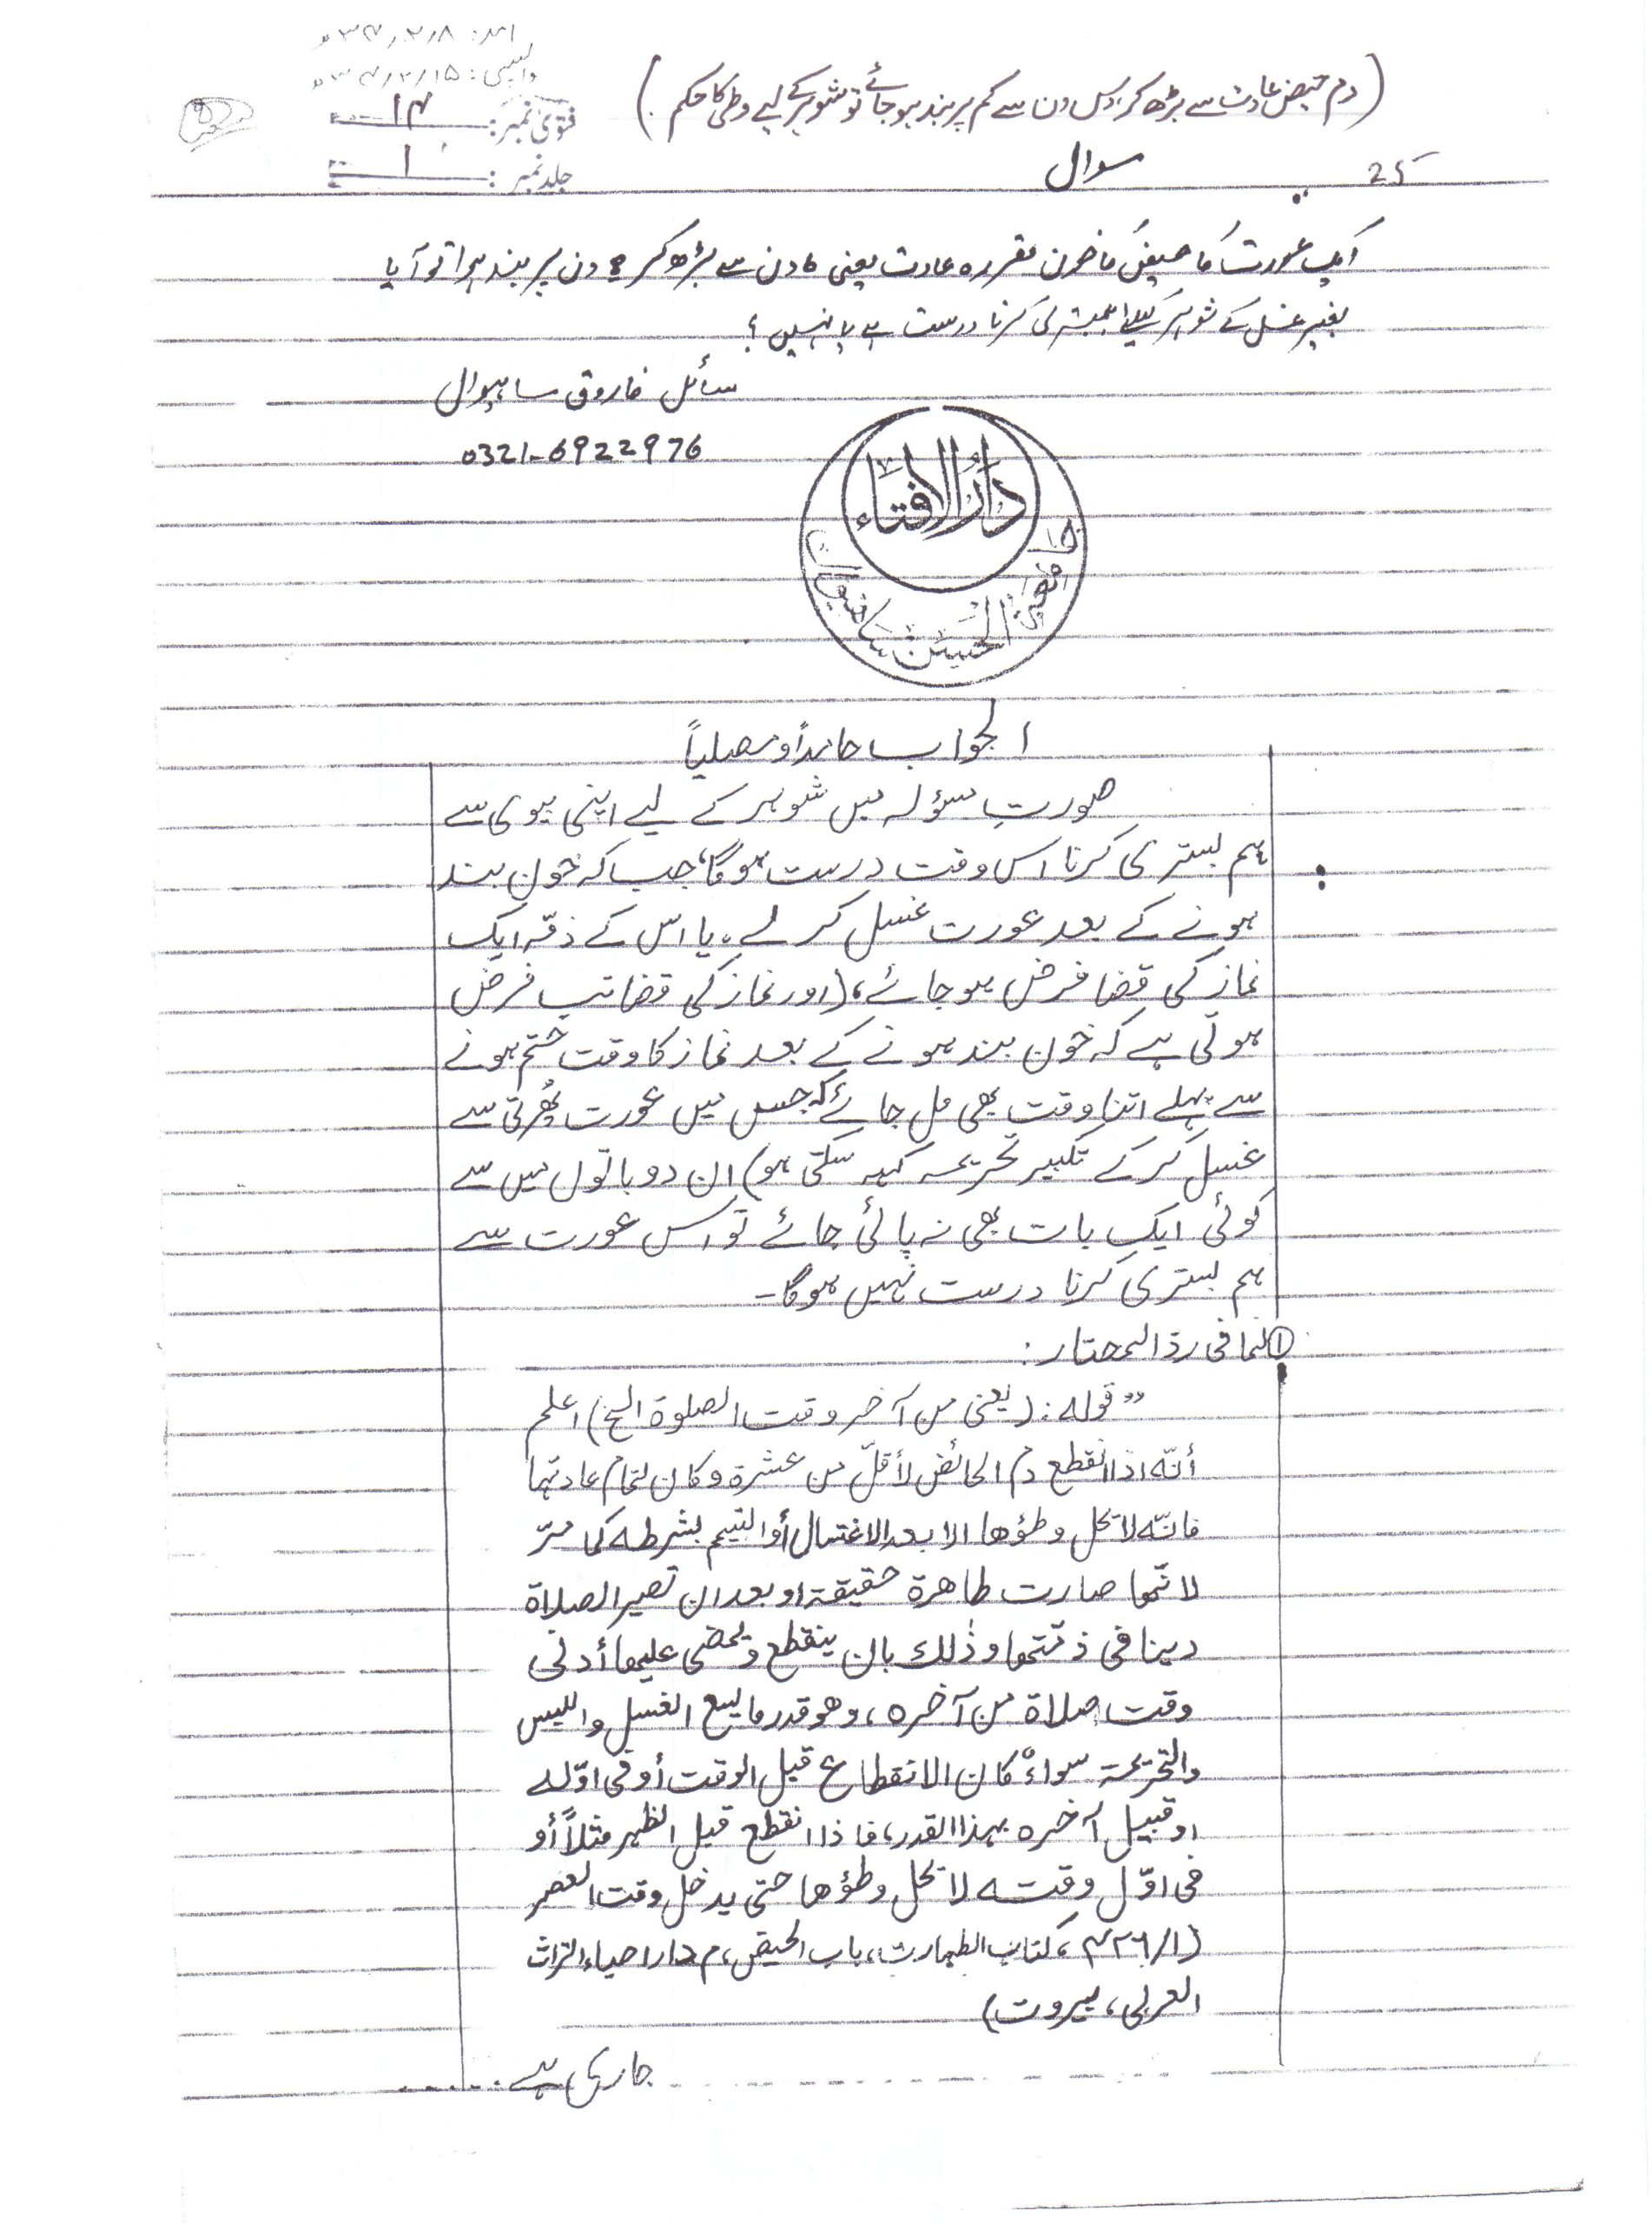 آمد: ۳۴/۲/۸ھ
واپسی: ۳۴/۲/۱۵ھ
فتویٰ نمبر: ۱۴
جلد نمبر: ۱
(دم حیض عادت سے بڑھ کر دس دن سے کم پر بند ہو جائے تو شوہر کے لیے وطی کا حکم.)
25
سوال
ایک عورت کا حیض کا خون مقررہ عادت یعنی 6 دن سے بڑھ کر 8 دن پر بند ہوا تو آیا
بغیر غسل کے شوہر کیلئے ہمبستری کرنا درست ہے یا نہیں؟
سائل فاروق ساہیوال
0321-6922976
دار الافتاء
الجواب حامداً ومصلیاً
صورتِ مسؤلہ میں شوہر کے لیے اپنی بیوی سے
ہم بستری کرنا اس وقت درست ہوگا، جب کہ خون بند
ہونے کے بعد عورت غسل کر لے، یا اس کے ذمّہ ایک
نماز کی قضا فرض ہو جائے، (اور نماز کی قضا تب فرض
ہوتی ہے کہ خون بند ہونے کے بعد نماز کا وقت ختم ہونے
سے پہلے اتنا وقت بھی مل جائے کہ جس میں عورت پُھرتی سے
غسل کر کے تکبیر تحریمہ کہہ سکتی ہو) ان دو باتوں میں سے
کوئی ایک بات بھی نہ پائی جائے تو اس عورت سے
ہم بستری کرنا درست نہیں ہوگا۔
① لما فی ردّ المحتار:
”قوله: (یعنی من آخر وقت الصلوة الخ) اعلم
أنّه اذا انقطع دم الحائض لأقلّ من عشرة وکان لتمام عادتہا
فانّه لا تحل وطؤها الا بعد الاغتسال أو التیمم بشرطه کما مرّ
لانّھا صارت طاهرة حقیقة او بعد ان تصیر الصلاة
دینا فی ذمّتھا وذٰلک بان ینقطع ویمضی علیھا أدنی
وقت صلاة من آخره، وهو قدر ما یسع الغسل واللبس
والتحریمة سواءٌ کان الانقطاع قبل الوقت أو فی اوّله
او قبیل آخره بہذا القدر، فاذا انقطع قبل الظہر مثلاً أو
فی اوّل وقته لا تحل وطؤها حتی یدخل وقت العصر
(۱/۴۲٦، کتاب الطہارت، باب الحیض، م دار احیاء التراث
العربی، بیروت)
جاری ہے.......